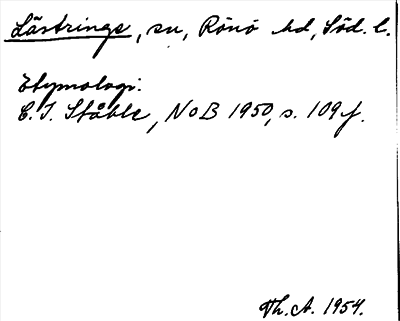 Lästringe, sn, Rönö hd, Söd. l.
Etymologi:
C. I. Ståhle, NoB 1950, s. 109 f.
Th. A. 1954.